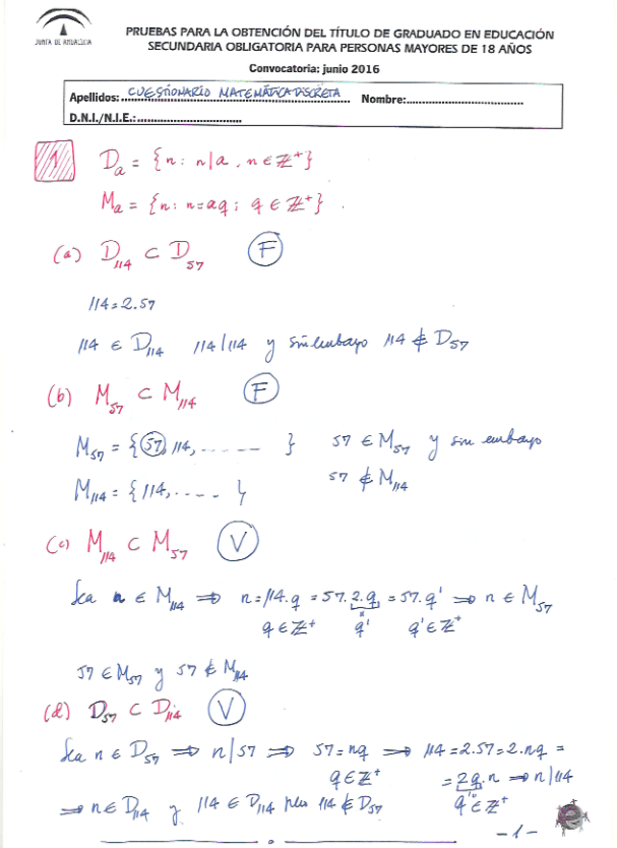 JUNTA DE ANDALUCIA
PRUEBAS PARA LA OBTENCIÓN DEL TÍTULO DE GRADUADO EN EDUCACIÓN
SECUNDARIA OBLIGATORIA PARA PERSONAS MAYORES DE 18 AÑOS
Convocatoria: junio 2016
Apellidos: CUESTIONARIO MATEMÁTICA DISCRETA Nombre:
D.N.I./N.I.E.:
1 D_a = {n: n|a, n ∈ Z⁺}
M_a = {n: n=aq; q ∈ Z⁺}.
(a) D_114 ⊂ D_57 F
114=2.57
114 ∈ D_114 114|114 y sin embargo 114 ∉ D_57
(b) M_57 ⊂ M_114 F
M_57 = {57, 114, ...... } 57 ∈ M_57 y sin embargo
M_114 = {114, ..... } 57 ∉ M_114
(c) M_114 ⊂ M_57 V
Sea n ∈ M_114 ⇒ n=114.q = 57.2.q = 57.q' ⇒ n ∈ M_57
q ∈ Z⁺ q' q' ∈ Z⁺
57 ∈ M_57 y 57 ∉ M_114
(d) D_57 ⊂ D_114 V
Sea n ∈ D_57 ⇒ n|57 ⇒ 57=nq ⇒ 114=2.57=2.nq =
q ∈ Z⁺ = 2q.n ⇒ n|114
⇒ n ∈ D_114 y 114 ∈ D_114 pero 114 ∉ D_57 q' ∈ Z⁺
-1-